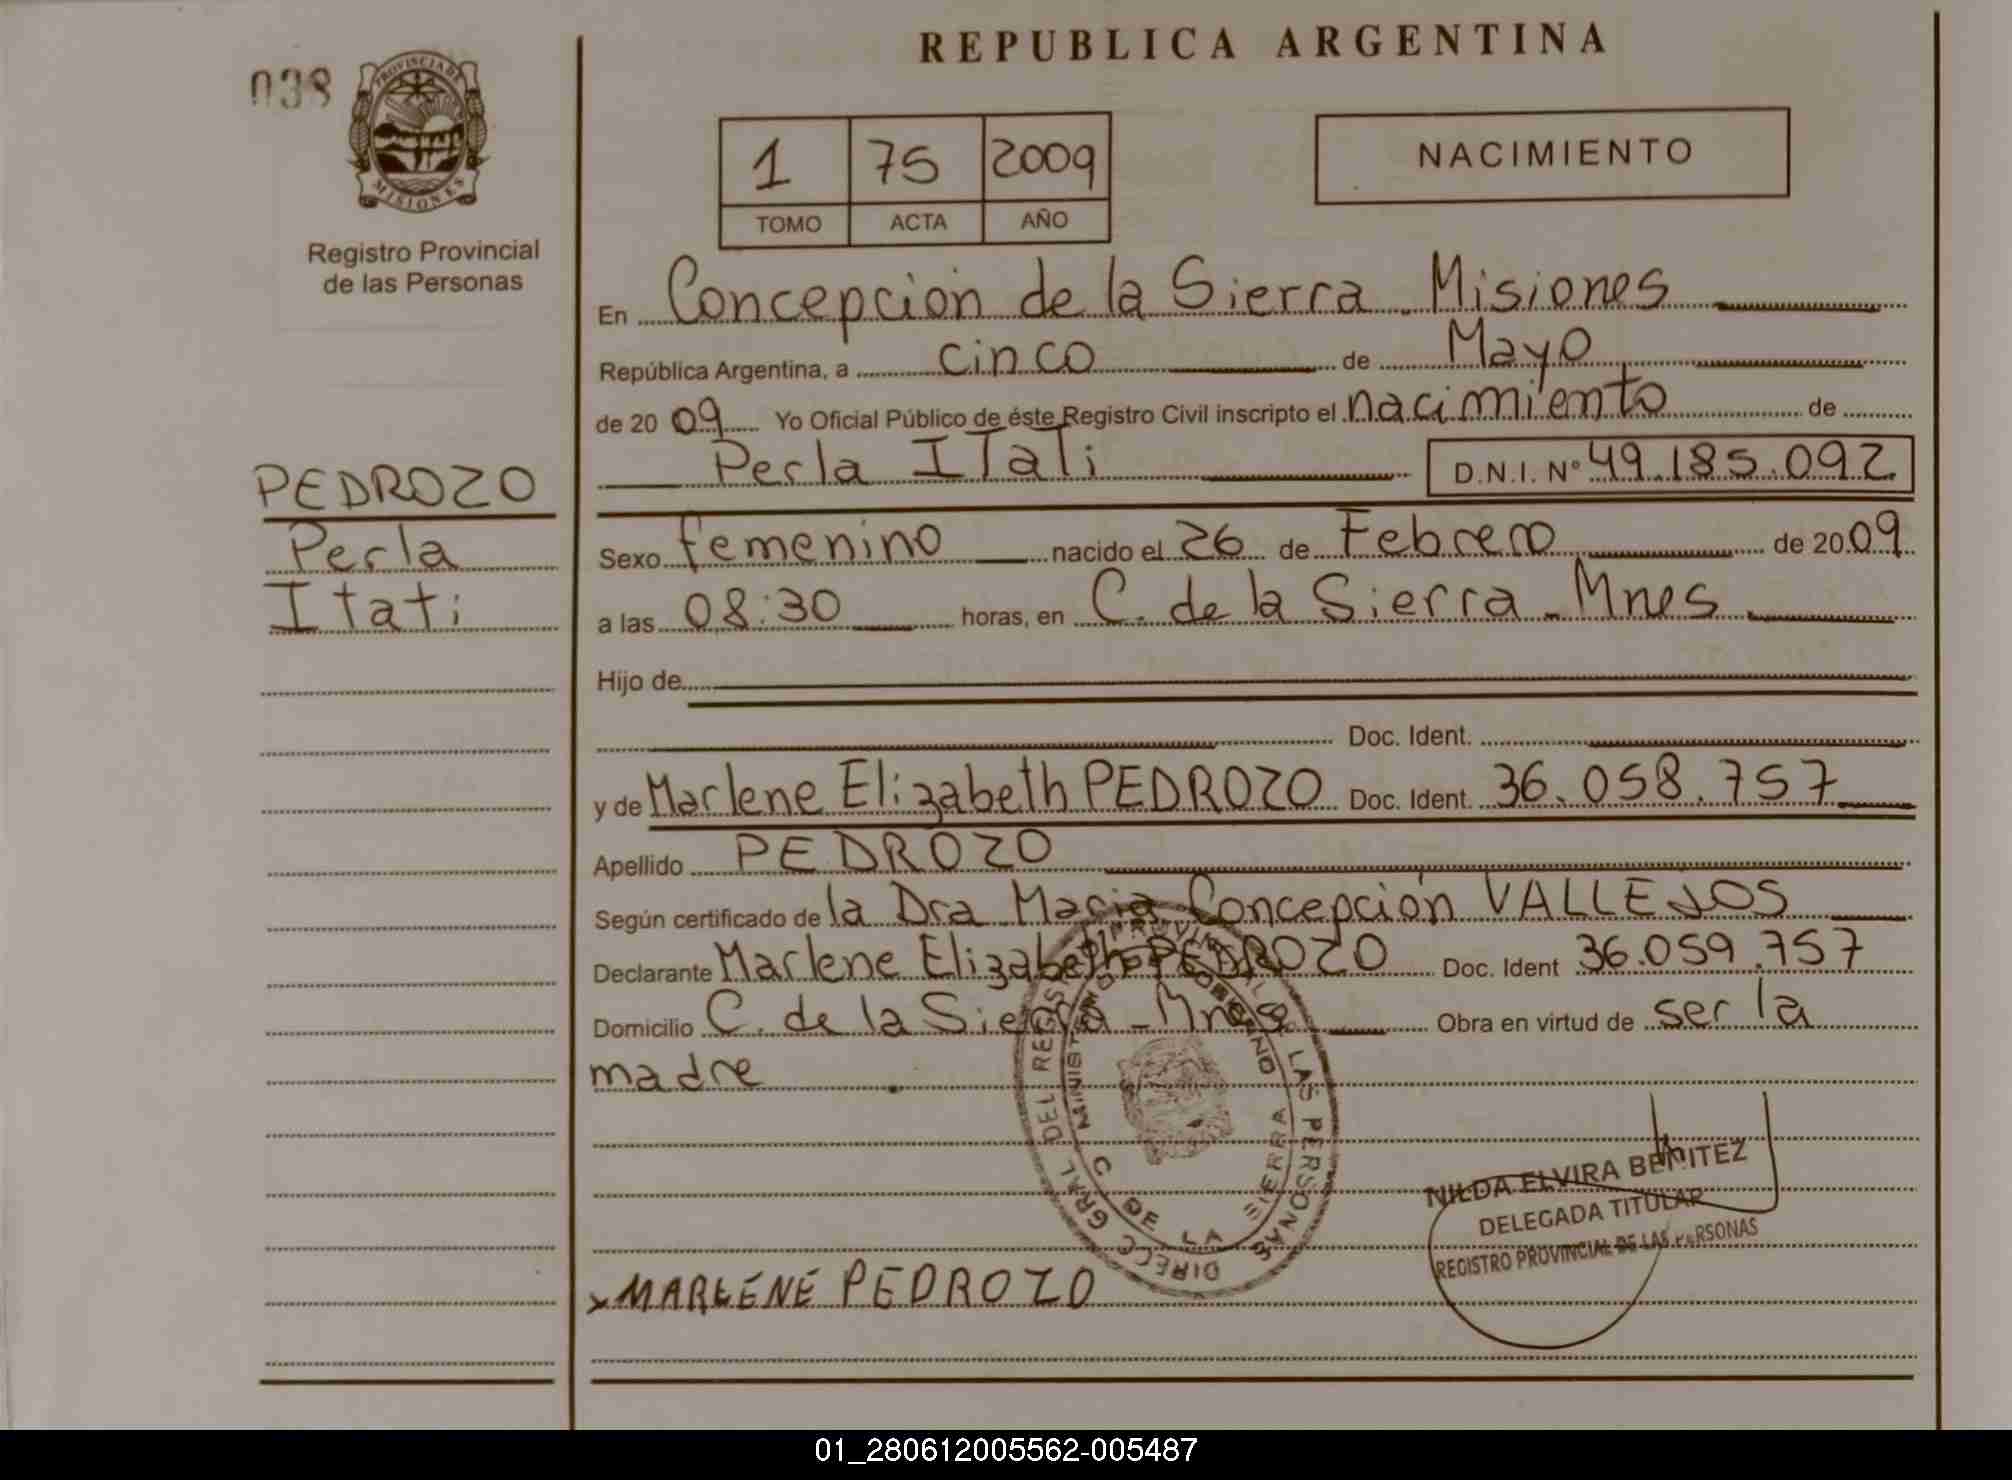 REPUBLICA ARGENTINA
038
PROVINCIA DE
MISIONES
Registro Provincial
de las Personas
1 75 2009
TOMO ACTA AÑO
NACIMIENTO
En Concepción de la Sierra - Misiones
República Argentina, a cinco de Mayo
de 2009 Yo Oficial Público de éste Registro Civil inscripto el nacimiento de
Perla Itati D.N.I. Nº 49.185.092
PEDROZO
Perla
Itati
Sexo femenino nacido el 26 de Febrero de 2009
a las 08:30 horas, en C. de la Sierra - Mnes
Hijo de
Doc. Ident.
y de Marlene Elizabeth PEDROZO Doc. Ident. 36.058.757
Apellido PEDROZO
Según certificado de la Dra Maria Concepción VALLEJOS
Declarante Marlene Elizabeth PEDROZO Doc. Ident 36.059.757
Domicilio C. de la Sierra - Mnes Obra en virtud de ser la
madre
DIRECC GRAL DEL REGIST PROVINCIAL DE LAS PERSONAS
C DE LA SIERRA
NILDA ELVIRA BENITEZ
DELEGADA TITULAR
REGISTRO PROVINCIAL DE LAS PERSONAS
x MARLENE PEDROZO
01_280612005562-005487